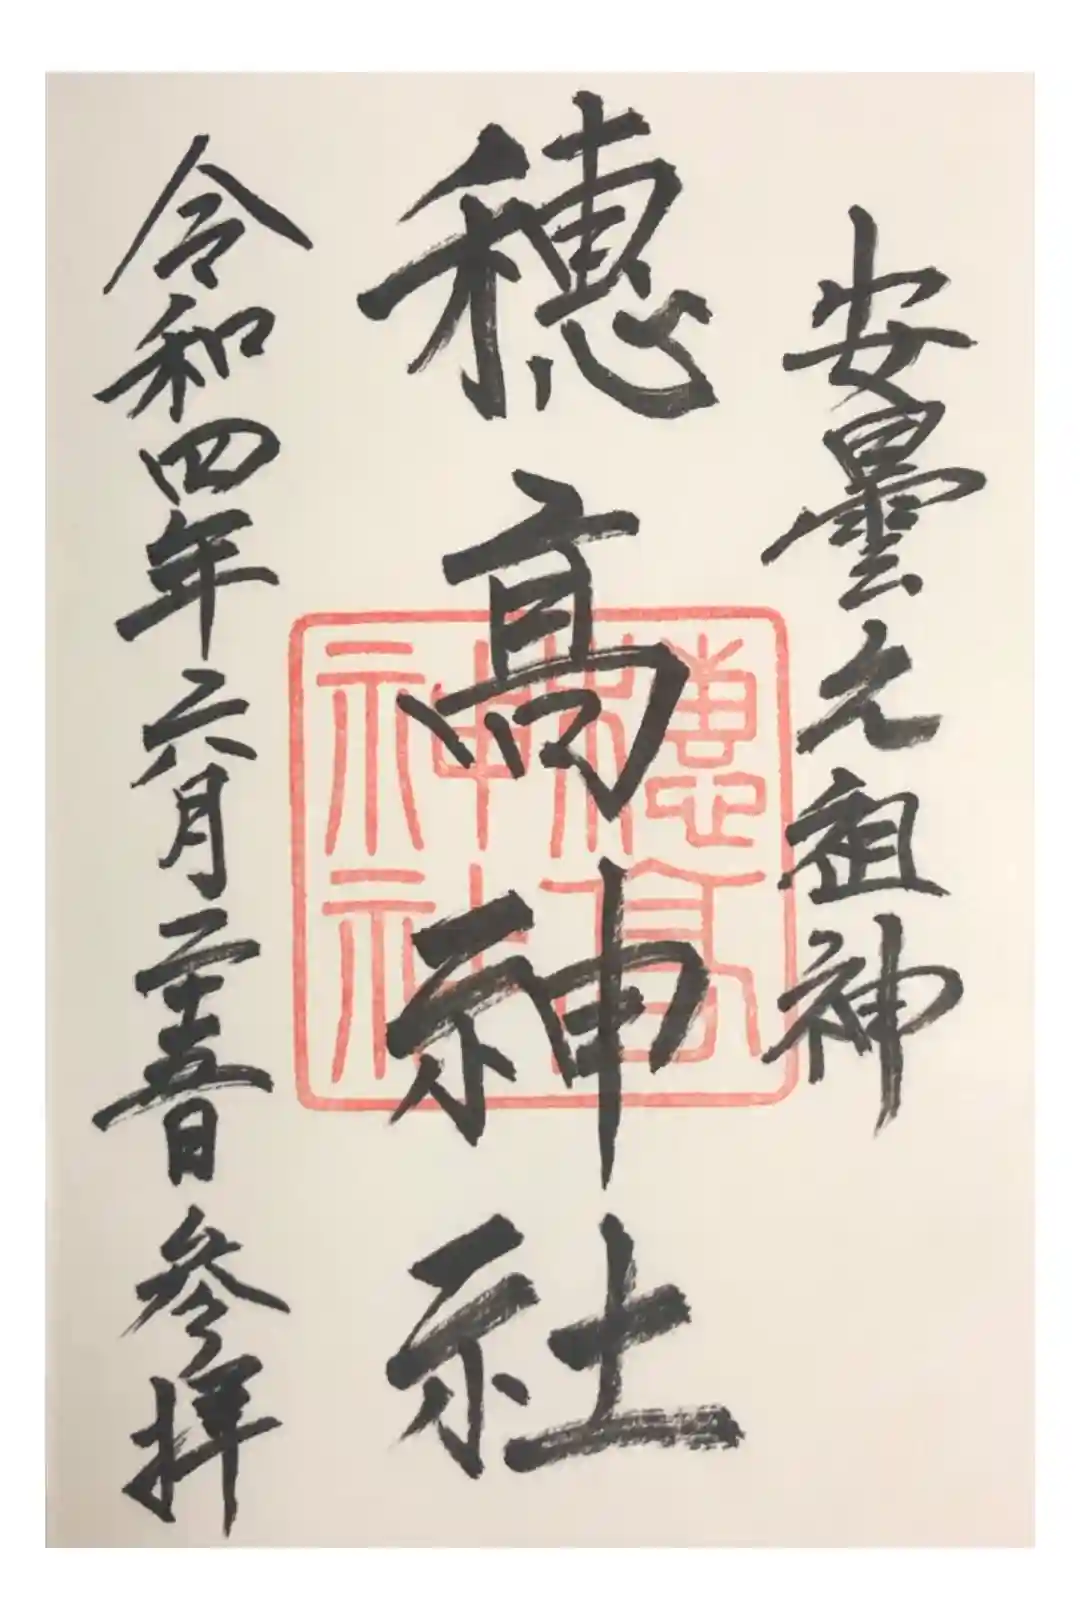 安曇元祖神
穂髙神社
穂髙神社
令和四年六月二十五日参拝